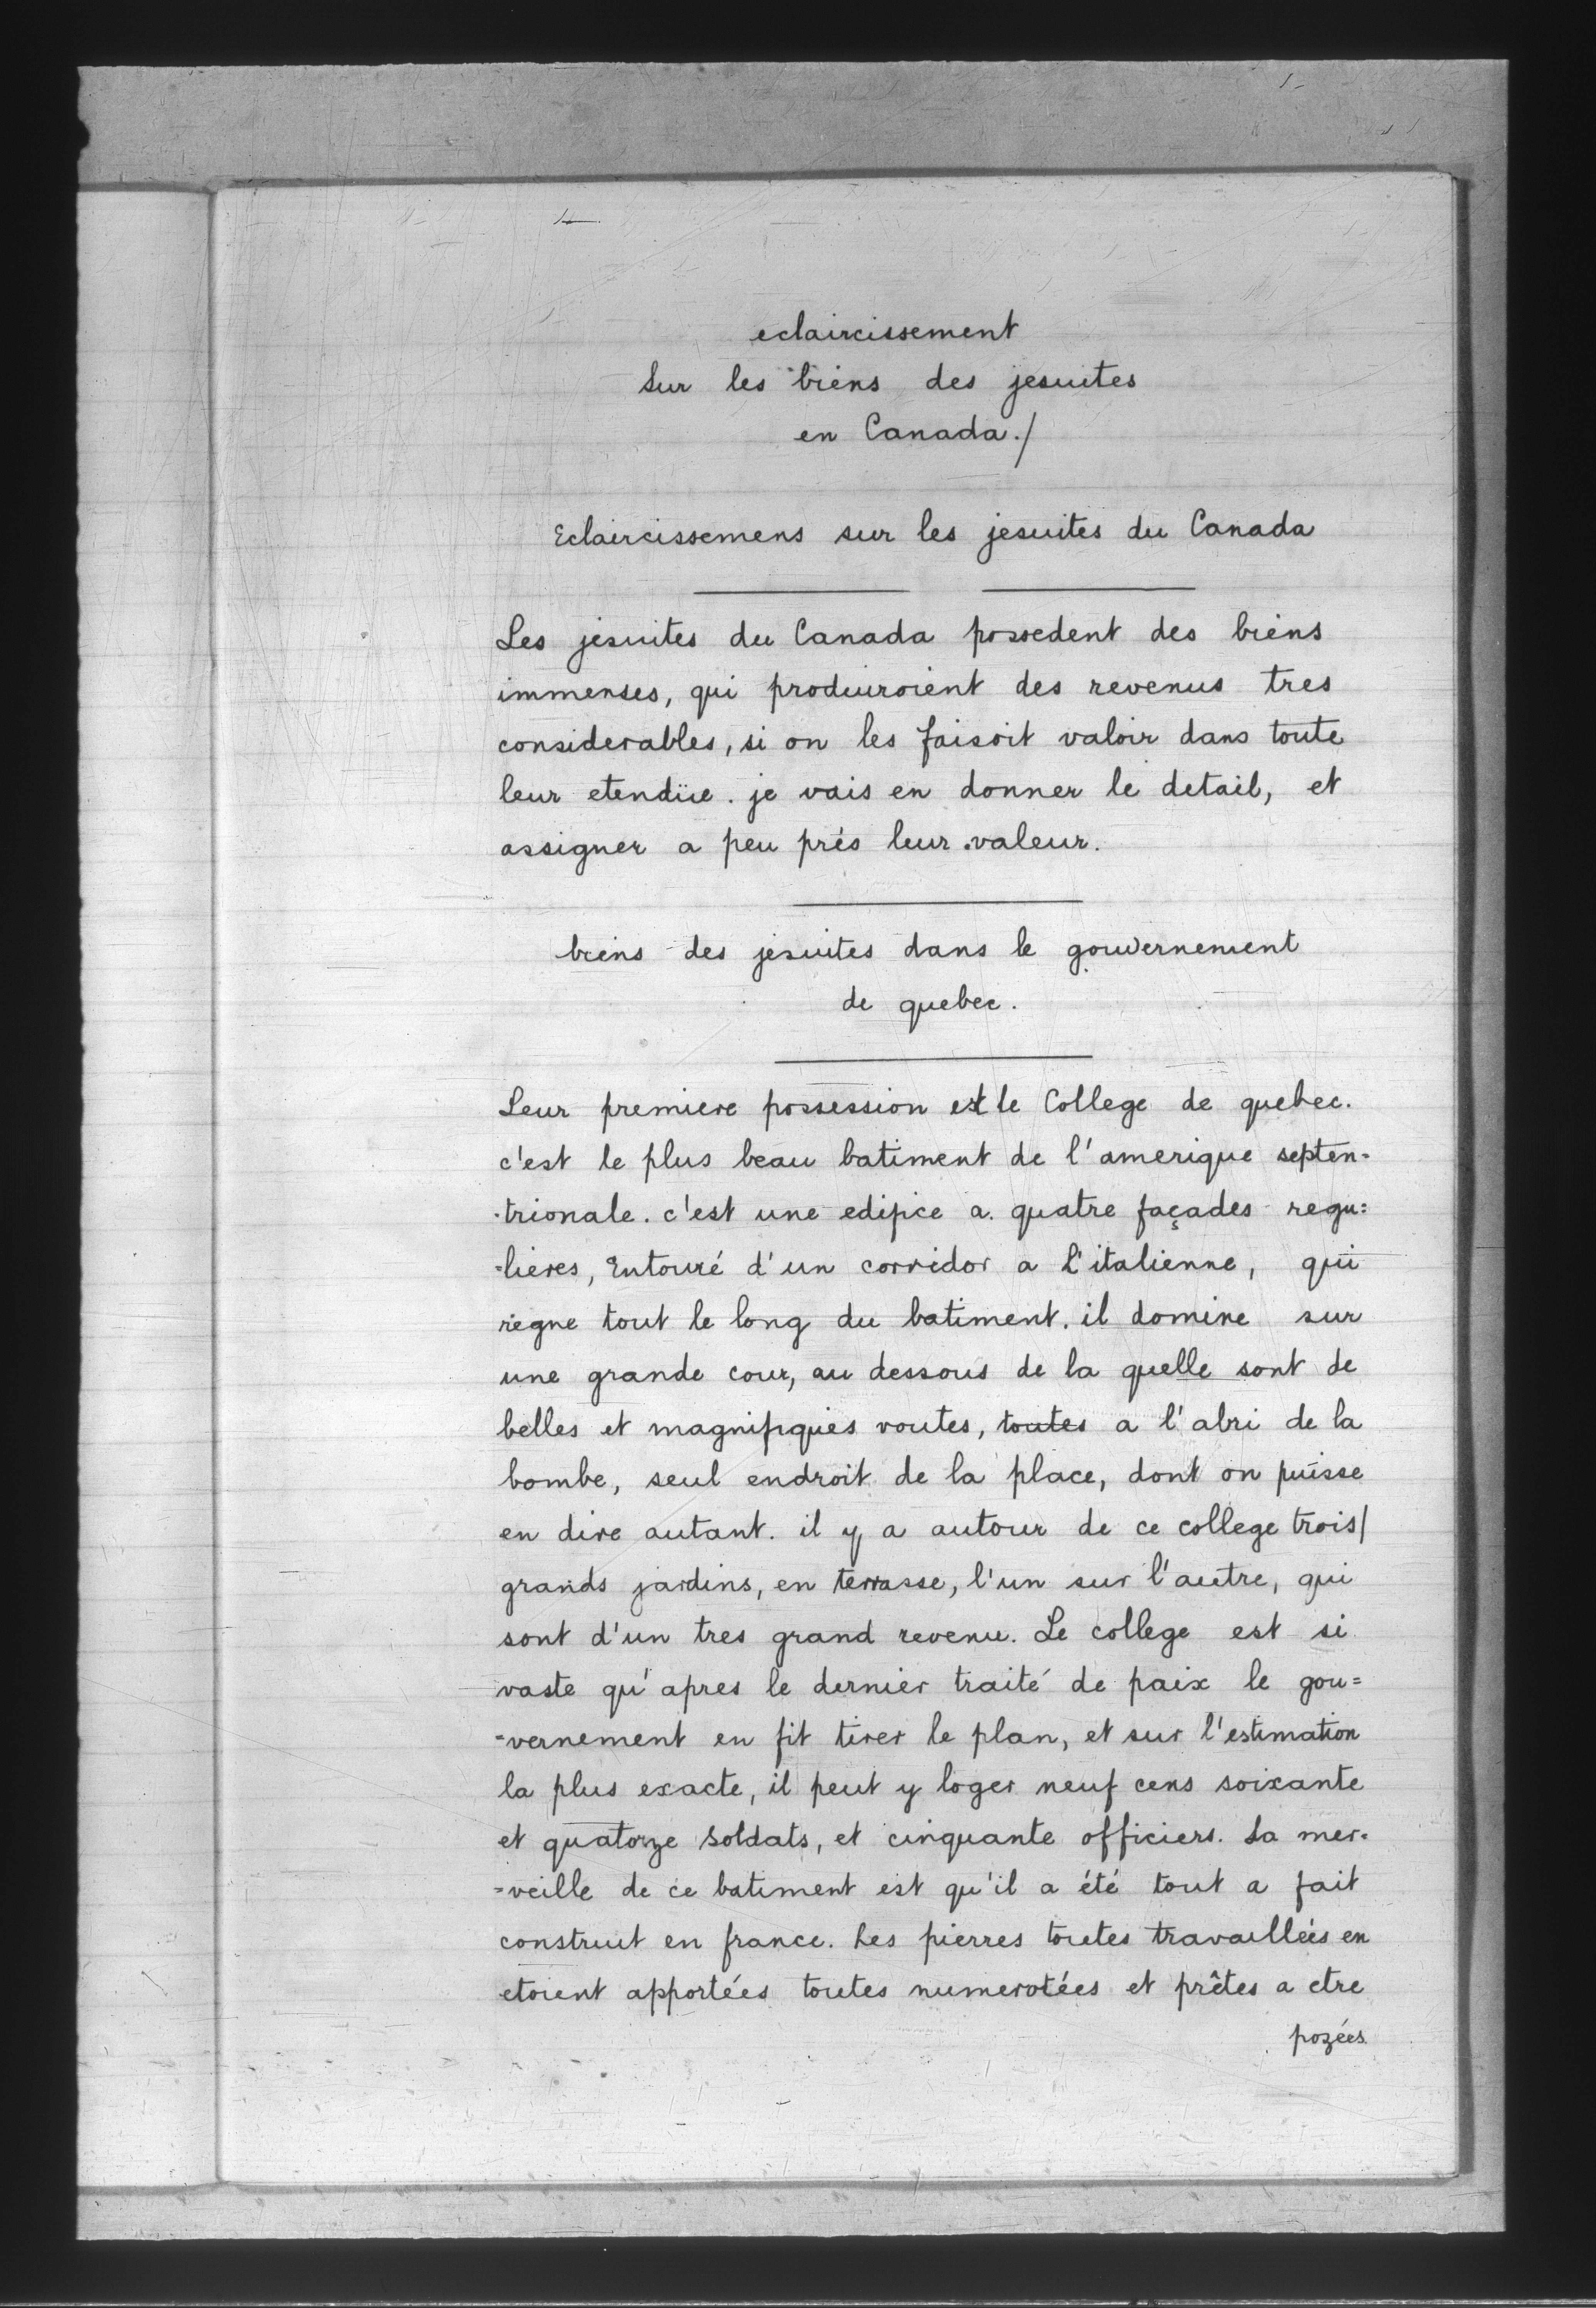 eclaircissement
sur les biens des jesuites
en Canada./
Eclaircissemens sur les jesuites du Canada
Les jesuites du Canada possedent des biens
immenses, qui produiroient des revenus tres
considerables, si on les faisoit valoir dans toute
leur etendüe. je vais en donner le detail, et
assigner a peu prés leur valeur.
biens des jesuites dans le gouvernement
de quebec.
Leur premiere possession est le College de quebec.
c'est le plus beau batiment de l'amerique septen=
=trionale. c'est une edifice a quatre façades regu=
=lieres, Entouré d'un corridor a L'italienne, qui
regne tout le long du batiment. il domine sur
une grande cour, au dessous de la quelle sont de
belles et magnifiques voutes, toutes a l'abri de la
bombe, seul endroit de la place, dont on puisse
en dire autant. il y a autour de ce college trois/
grands jardins, en terrasse, l'un sur l'autre, qui
sont d'un tres grand revenu. Le college est si
vaste qu'apres le dernier traité de paix le gou=
=vernement en fit tirer le plan, et sur l'estimation
la plus exacte, il peut y loger neuf cens soixante
et quatorze soldats, et cinquante officiers. La mer=
=veille de ce batiment est qu'il a été tout a fait
construit en france. Les pierres toutes travaillées en
etoient apportées toutes numerotées et prêtes a etre
pozées